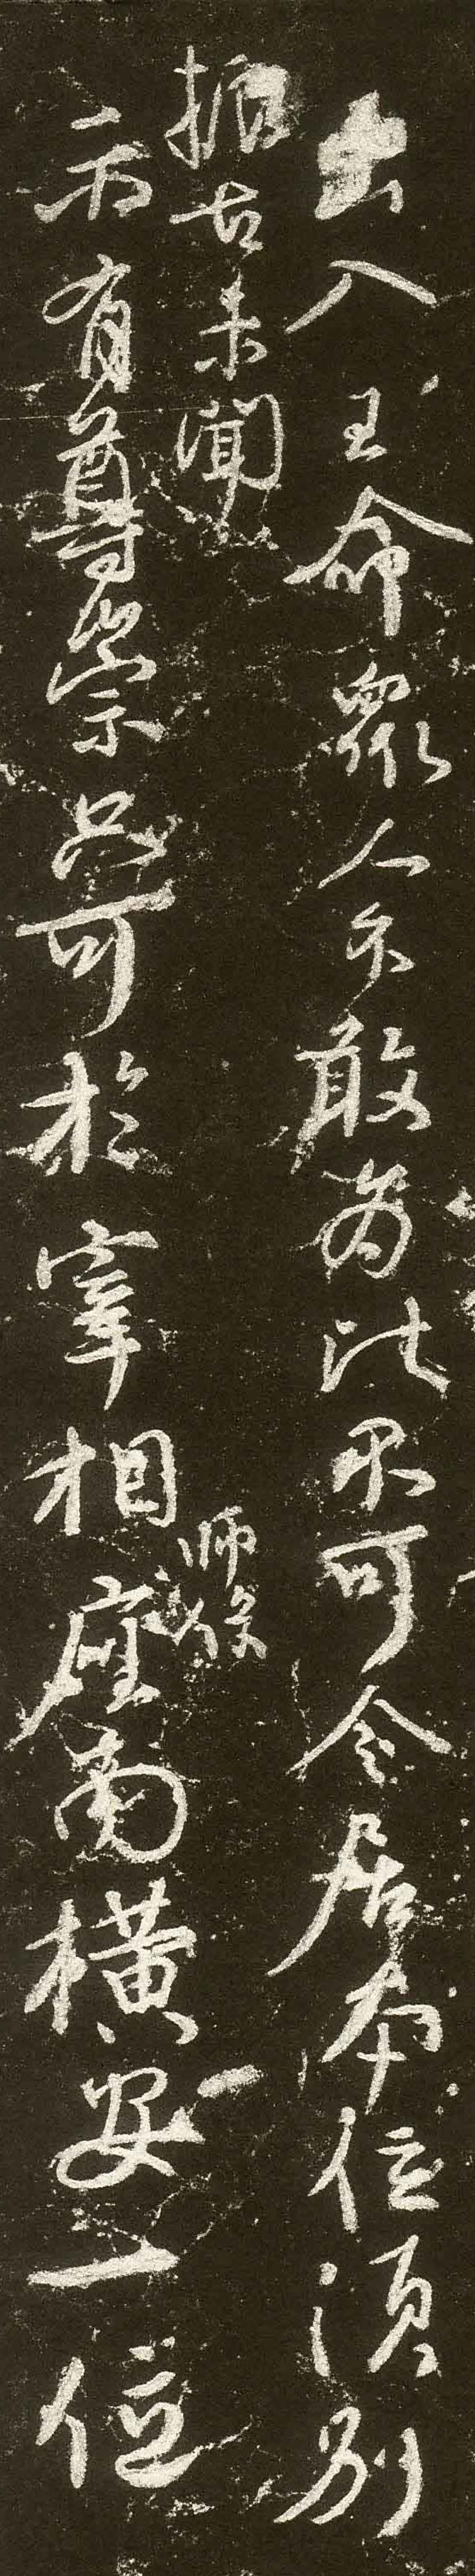 出入王命眾人不敢為比不可令居本位須別
據古未聞
師保
示有尊崇只可於宰相座南橫安一位